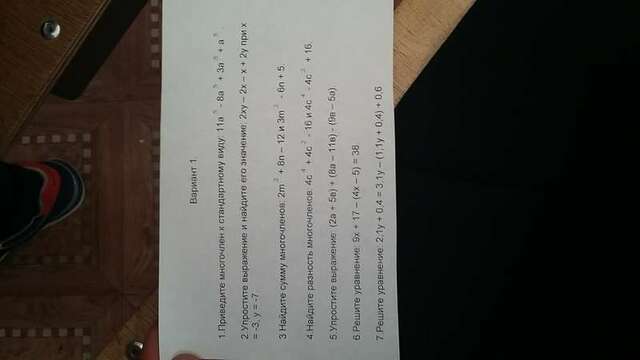 Вариант 1.
1.Приведите многочлен к стандартному виду: 11a⁵ - 8a⁵ + 3a⁵ + a⁵.
2.Упростите выражение и найдите его значение: 2xy – 2x – x + 2y при x
= -3, y = -7
3.Найдите сумму многочленов: 2m² + 8n – 12 и 3m² - 6n + 5.
4.Найдите разность многочленов: 4c⁴ + 4c² - 16 и 4c⁴ - 4c² + 16.
5.Упростите выражение: (2a + 5в) + (8a – 11в) - (9в – 5a)
6.Решите уравнение: 9x + 17 – (4x – 5) = 38.
7.Решите уравнение: 2,1y + 0,4 = 3,1y – (1,1y + 0,4) + 0,6